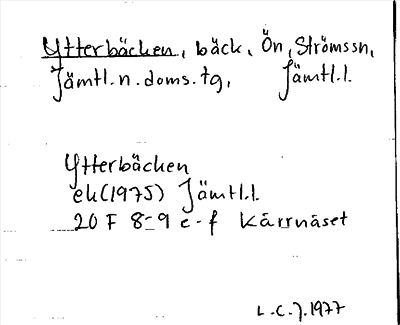 Ytterbäcken, bäck, Ön, Strömssn,
Jämtl.n.doms.tg, Jämtl.l.
Ytterbäcken
ek(1975) Jämtl.l.
20 F 8-9 e-f Kärrnäset
L.C.J.1977